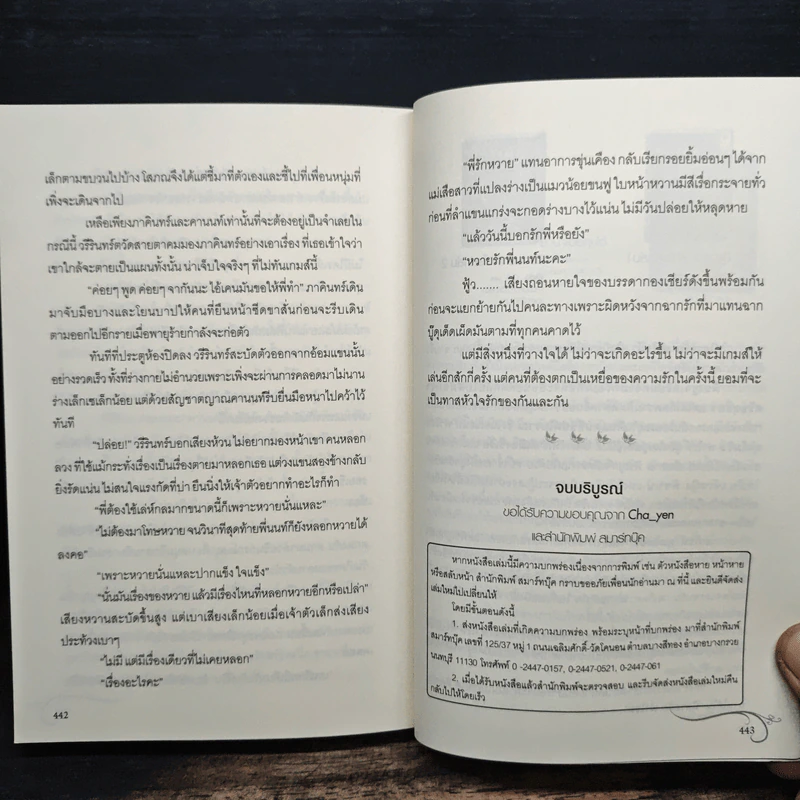 เล็กตามขบวนไปบ้าง โสภณจึงได้แต่ชี้มาที่ตัวเองและชี้ไปที่เพื่อนหนุ่มที่
เพิ่งจะเดินจากไป
เหลือเพียงภาคินทร์และคานนท์เท่านั้นที่จะต้องอยู่เป็นจำเลยใน
กรณีนี้ วรีรินทร์ตวัดสายตาคมมองภาคินทร์อย่างเอาเรื่อง ที่เธอเข้าใจว่า
เขาใกล้จะตายเป็นแผนทั้งนั้น น่าเจ็บใจจริงๆ ที่ไม่ทันเกมส์นี้
“ค่อยๆ พูด ค่อยๆ จากันนะ ไอ้เคนมันขอให้พี่ทำ” ภาคินทร์เดิน
มาจับมือบางและโยนบาปให้คนที่ยืนหน้าซีดขาสั่นก่อนจะรีบเดิน
ตามออกไปอีกรายเมื่อพายุร้ายกำลังจะก่อตัว
ทันทีที่ประตูห้องปิดลง วรีรินทร์สะบัดตัวออกจากอ้อมแขนนั้น
อย่างรวดเร็ว ทั้งที่ร่างกายไม่อำนวยเพราะเพิ่งจะผ่านการคลอดมาไม่นาน
ร่างเล็กเซเล็กน้อย แต่ด้วยสัญชาตญาณคานนท์รีบยื่นมือหนาไปคว้าไว้
ทันที
“ปล่อย!” วรีรินทร์บอกเสียงห้วน ไม่อยากมองหน้าเขา คนหลอก
ลวง ที่ใช้แม้กระทั่งเรื่องเป็นเรื่องตายมาหลอกเธอ แต่วงแขนสองข้างกลับ
ยิ่งรัดแน่น ไม่สนใจแรงกัดที่บ่า ยืนนิ่งให้เจ้าตัวอยากทำอะไรก็ทำ
“พี่ต้องใช้เล่ห์กลมากขนาดนี้ก็เพราะหวายนั่นแหละ”
“ไม่ต้องมาโทษหวาย จนวินาทีสุดท้ายพี่นนท์ก็ยังหลอกหวายได้
ลงคอ”
“เพราะหวายนั่นแหละปากแข็ง ใจแข็ง”
“นั่นมันเรื่องของหวาย แล้วมีเรื่องไหนที่หลอกหวายอีกหรือเปล่า”
เสียงหวานสะบัดขึ้นสูง แต่เบาเสียงเล็กน้อยเมื่อเจ้าตัวเล็กส่งเสียง
ประท้วงเบาๆ
“ไม่มี แต่มีเรื่องเดียวที่ไม่เคยหลอก”
“เรื่องอะไรคะ”
442
“พี่รักหวาย” แทนอาการขุ่นเคือง กลับเรียกรอยยิ้มอ่อนๆ ได้จาก
แม่เสือสาวที่แปลงร่างเป็นแมวน้อยขนฟู ใบหน้าหวานมีสีเรื่อกระจายทั่ว
ก่อนที่ลำแขนแกร่งจะกอดร่างบางไว้แน่น ไม่มีวันปล่อยให้หลุดหาย
“แล้ววันนี้บอกรักพี่หรือยัง”
“หวายรักพี่นนท์นะคะ”
ฟู้ว....... เสียงถอนหายใจของบรรดากองเชียร์ดังขึ้นพร้อมกัน
ก่อนจะแยกย้ายกันไปคนละทางเพราะผิดหวังจากฉากรักที่มาแทนฉาก
บู๊ดุเด็ดเผ็ดมันตามที่ทุกคนคาดไว้
แต่มีสิ่งหนึ่งที่วางใจได้ ไม่ว่าจะเกิดอะไรขึ้น ไม่ว่าจะมีเกมส์ให้
เล่นอีกสักกี่ครั้ง แต่คนที่ต้องตกเป็นเหยื่อของความรักในครั้งนี้ ยอมที่จะ
เป็นทาสหัวใจรักของกันและกัน
จบบริบูรณ์
ขอได้รับความขอบคุณจาก Cha_yen
และสำนักพิมพ์ สมาร์ทบุ๊ค
หากหนังสือเล่มนี้มีความบกพร่องเนื่องจากการพิมพ์ เช่น ตัวหนังสือหาย หน้าหาย
หรือสลับหน้า สำนักพิมพ์ สมาร์ทบุ๊ค กราบขออภัยเพื่อนนักอ่านมา ณ ที่นี้ และยินดีจัดส่ง
เล่มใหม่ไปเปลี่ยนให้
โดยมีขั้นตอนดังนี้
1. ส่งหนังสือเล่มที่เกิดความบกพร่อง พร้อมระบุหน้าที่บกพร่อง มาที่สำนักพิมพ์
สมาร์ทบุ๊ค เลขที่ 125/37 หมู่ 1 ถนนเฉลิมศักดิ์-วัดโคนอน ตำบลบางสีทอง อำเภอบางกรวย
นนทบุรี 11130 โทรศัพท์ 0 -2447-0157, 0-2447-0521, 0-2447-061
2. เมื่อได้รับหนังสือแล้วสำนักพิมพ์จะตรวจสอบ และรีบจัดส่งหนังสือเล่มใหม่คืน
กลับไปให้โดยเร็ว
443